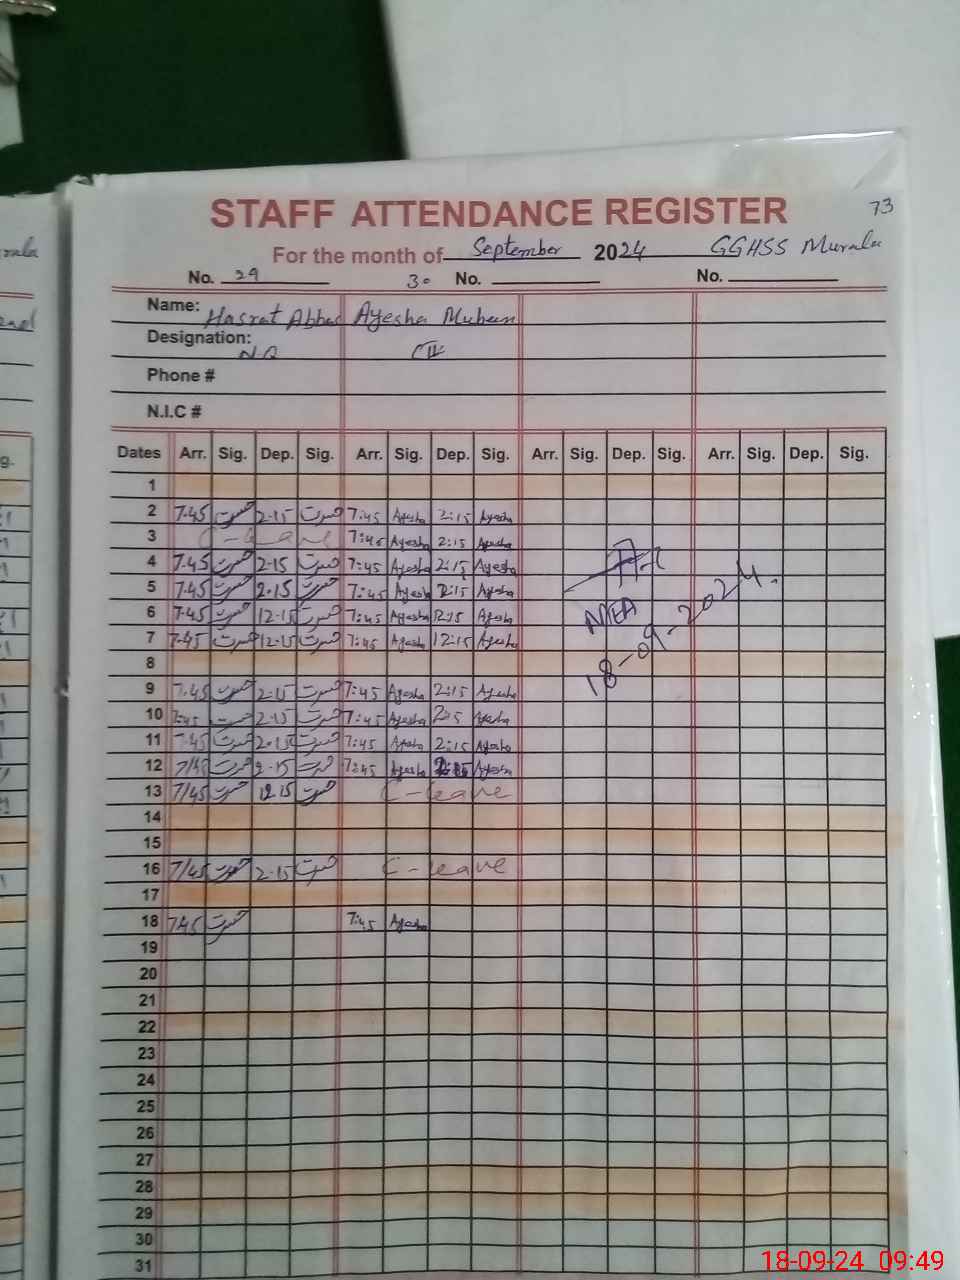 73
STAFF ATTENDANCE REGISTER
For the month of September 2024 GGHSS Murala
No. 29 30 No. No.
Name: Hasrat Abbas Ayesha Mubeen
Designation: N.Q IV
Phone #
N.I.C #
Dates Arr. Sig. Dep. Sig. Arr. Sig. Dep. Sig. Arr. Sig. Dep. Sig. Arr. Sig. Dep. Sig.
1
2 7.45 حسرت 2.15 حسرت 7:45 Ayesha 2:15 Ayesha
3 C-leave 7:45 Ayesha 2:15 Ayesha
4 7.45 حسرت 2.15 حسرت 7:45 Ayesha 2:15 Ayesha
5 7.45 حسرت 2.15 حسرت 7:45 Ayesha 2:15 Ayesha
6 7.45 حسرت 12.15 حسرت 7:45 Ayesha Ayesha
7 7.45 حسرت 12.15 حسرت 7:45 Ayesha 12:15 Ayesha
MEA
18-09-2024.
8
9 7.45 حسرت 2.15 حسرت 7:45 Ayesha 2:15 Ayesha
10 7:45 حسرت 2.15 حسرت 7:45 Ayesha 2:15 Ayesha
11 7.45 حسرت 2.15 حسرت 7:45 Ayesha 2:15 Ayesha
12 7/45 حسرت 2.15 حسرت 7:45 Ayesha Ayesha
13 7/45 حسرت 12.15 حسرت C-leave
14
15
16 7/45 حسرت 2.15 حسرت C-leave
17
18 7.45 حسرت 7:45 Ayesha
19
20
21
22
23
24
25
26
27
28
29
30
31
18-09-24 09:49